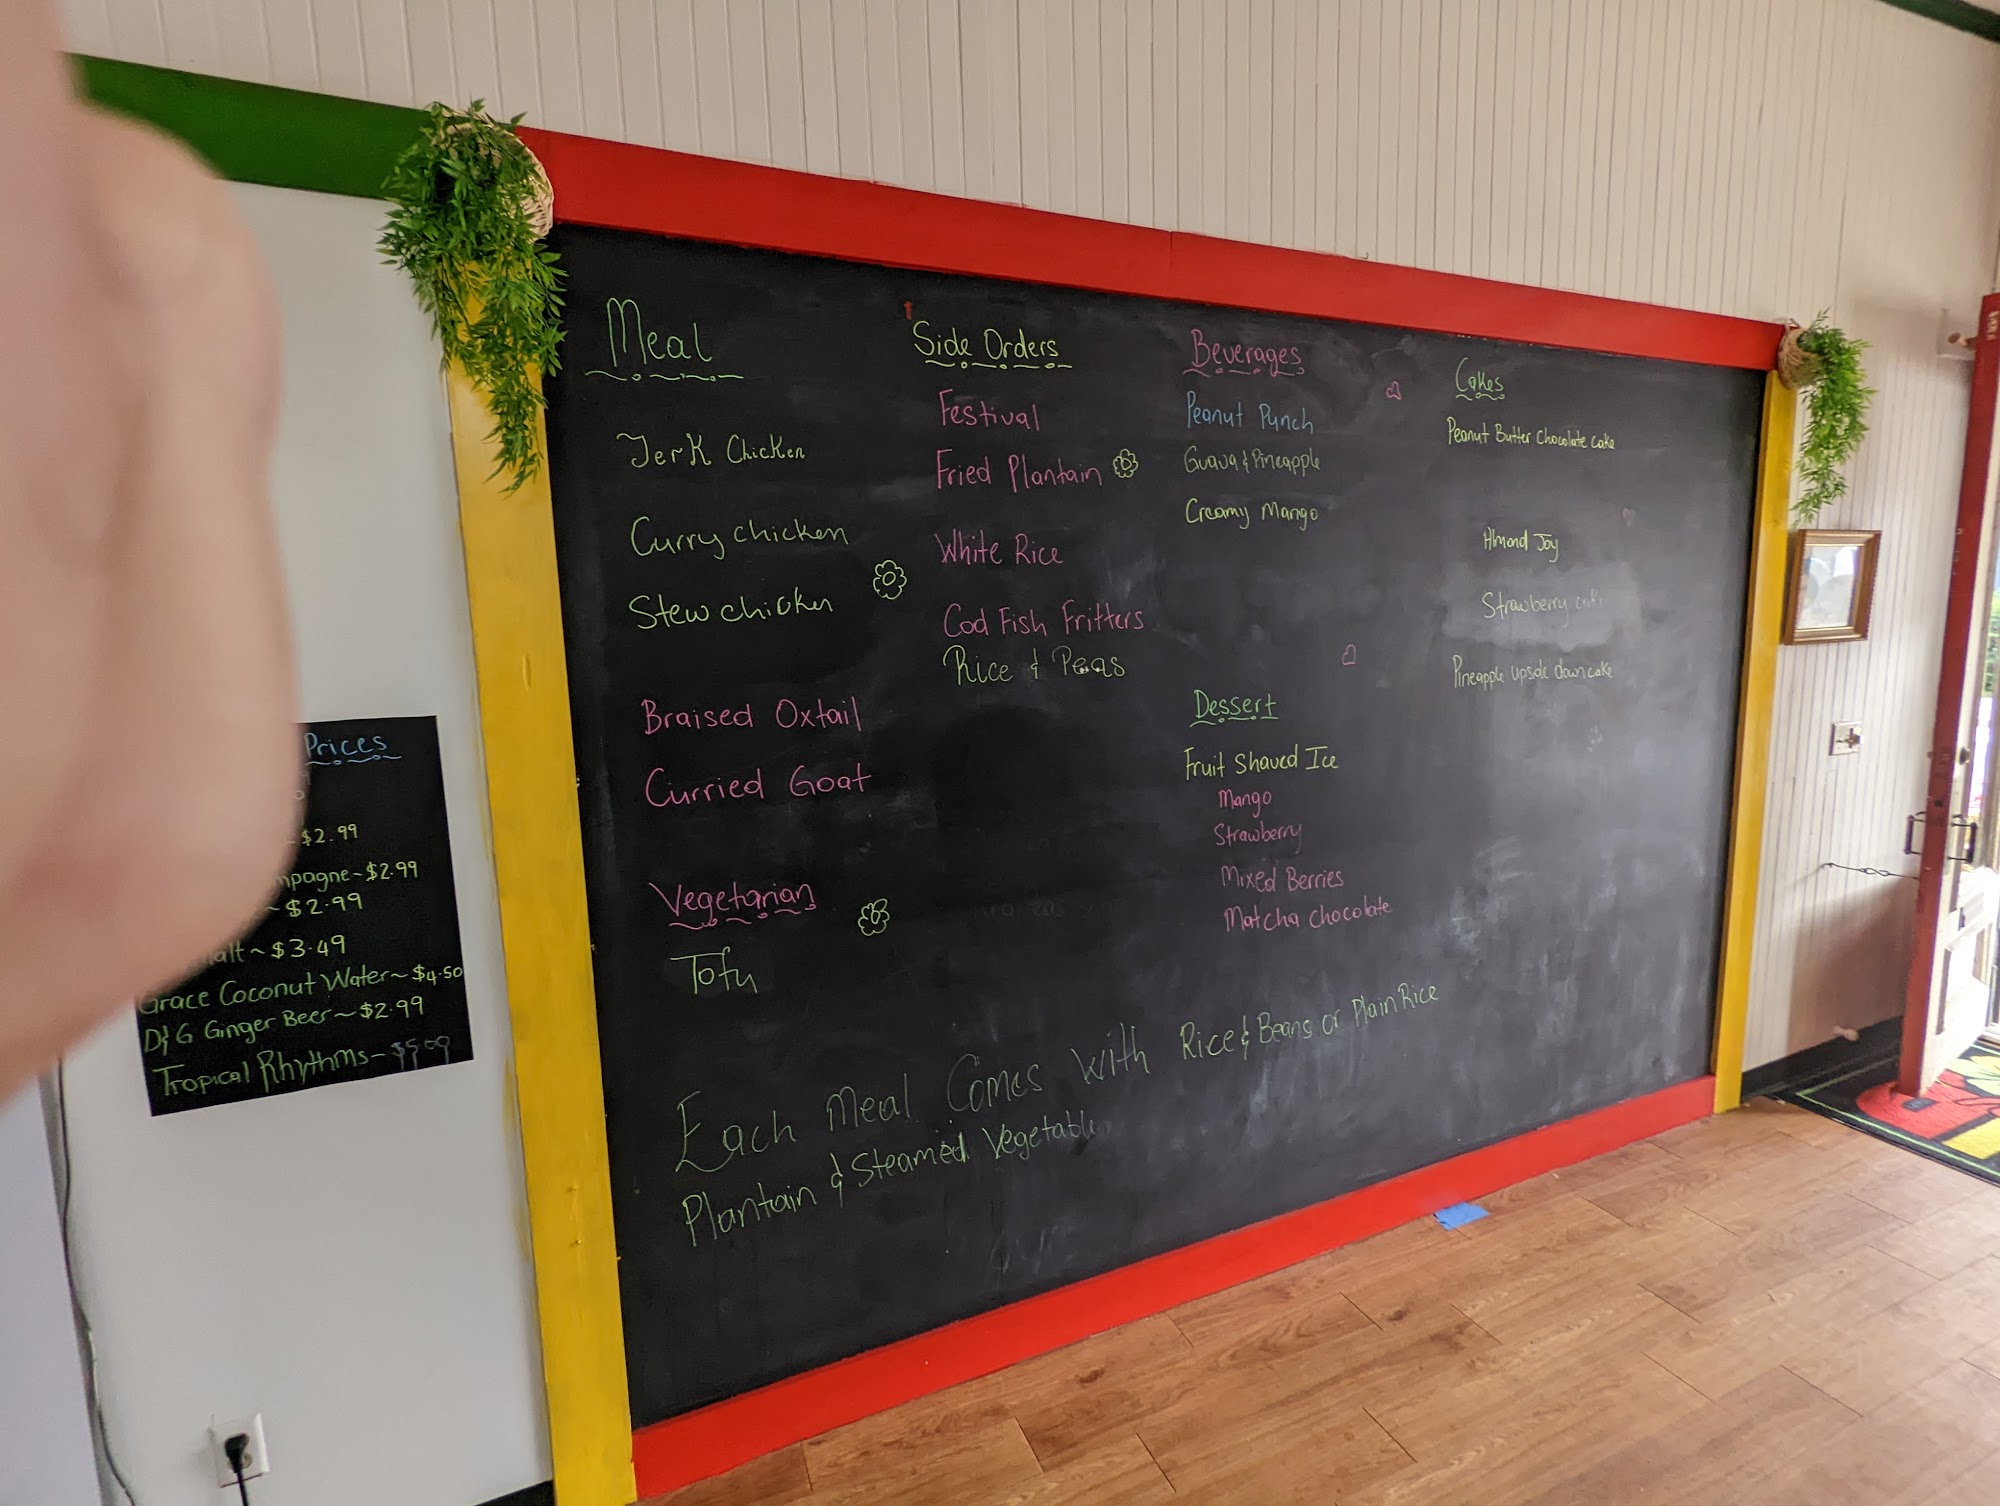 Meal
Jerk Chicken
Curry chicken
Stew chicken
Braised Oxtail
Curried Goat
Vegetarian
Tofu
Side Orders
Festival
Fried Plantain
White Rice
Cod Fish Fritters
Rice & Peas
Beverages
Peanut Punch
Guava & Pineapple
Creamy Mango
Dessert
Fruit Shaved Ice
Mango
Strawberry
Mixed Berries
Matcha chocolate
Cakes
Peanut Butter Chocolate Cake
Almond Joy
Strawberry cake
Pineapple upside down cake
Each Meal Comes with Rice & Beans or Plain Rice
Plantain & Steamed Vegetable
Prices
$2.99
~$2.99
~$2.99
~$3.49
Grace Coconut Water~$4.50
D&G Ginger Beer~$2.99
Tropical Rhythms~